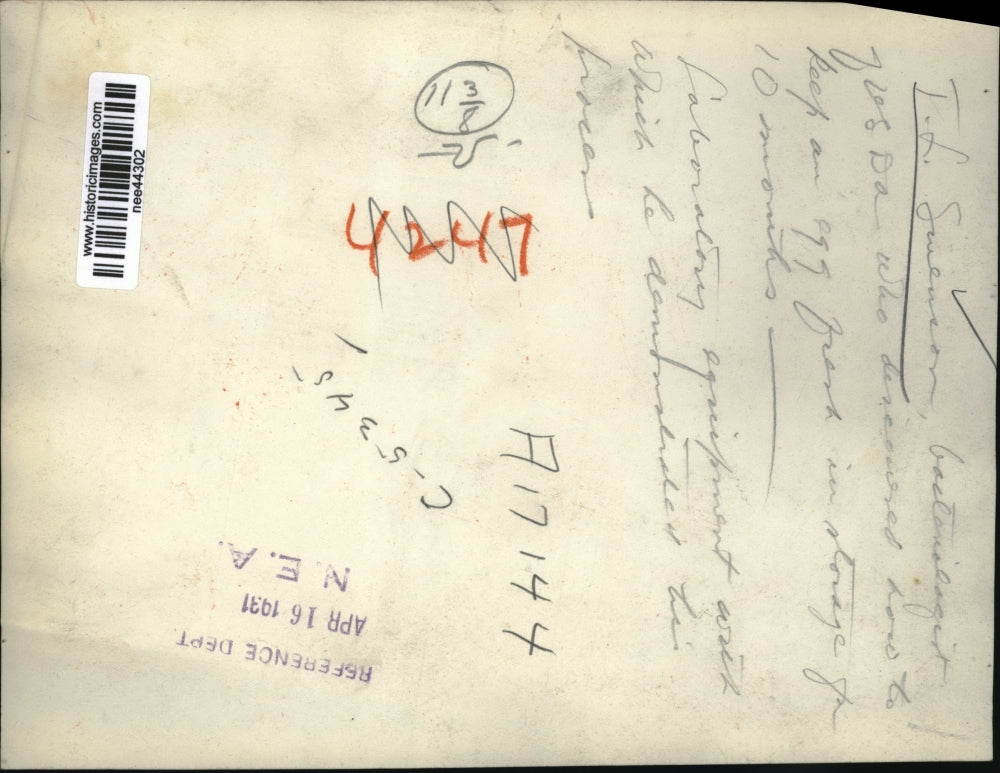 T. L. Swenson, bacteriologist
for U.S. Da. who discovered how to
keep an egg fresh in storage for
10 months
Laboratory equipment with
which he demonstrates his
process
11 3/8
15
4247
C-5-3445-1
A17144
REFERENCE DEPT
APR 16 1931
N. E. A.
www.historicimages.com
nee44302